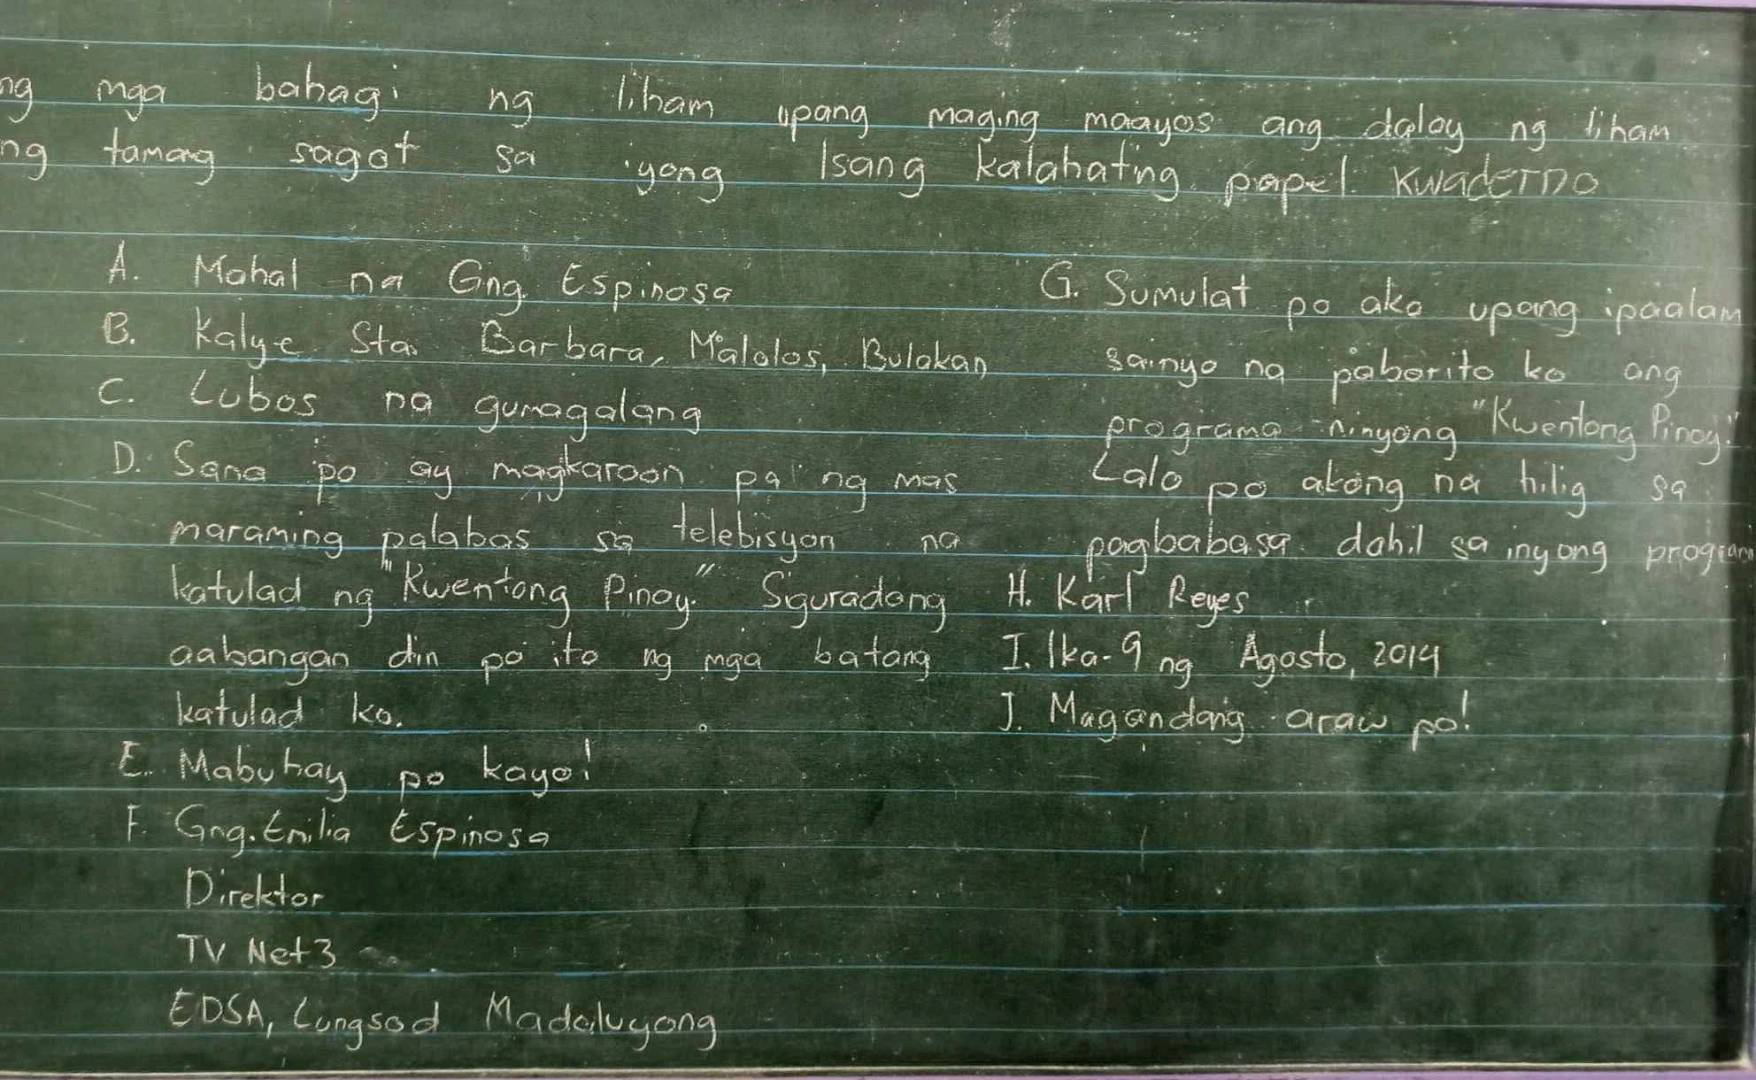 ng mga bahagi ng liham upang maging maayos ang daloy ng liham
ng tamang sagot sa iyong Isang kalahating papel. Kwaderno
A. Mahal na Gng. Espinosa
B. Kalye Sta. Barbara, Malolos, Bulakan
C. Lubos na gumagalang
D. Sana po ay magkaroon pa ng mas
maraming palabas sa telebisyon na
katulad ng "Kwentong Pinoy." Siguradong
aabangan din po ito ng mga batang
katulad ko.
E. Mabuhay po kayo!
F. Gng. Emilia Espinosa
Direktor
TV Net 3
EDSA, Lungsod Madaluyong
G. Sumulat po ako upang ipaalam
sainyo na paborito ko ang
programa ninyong "Kwentong Pinoy."
Lalo po akong na hilig sa
pagbabasa dahil sa inyong program
H. Karl Reyes
I. Ika-9 ng Agosto, 2014
J. Magandang araw po!